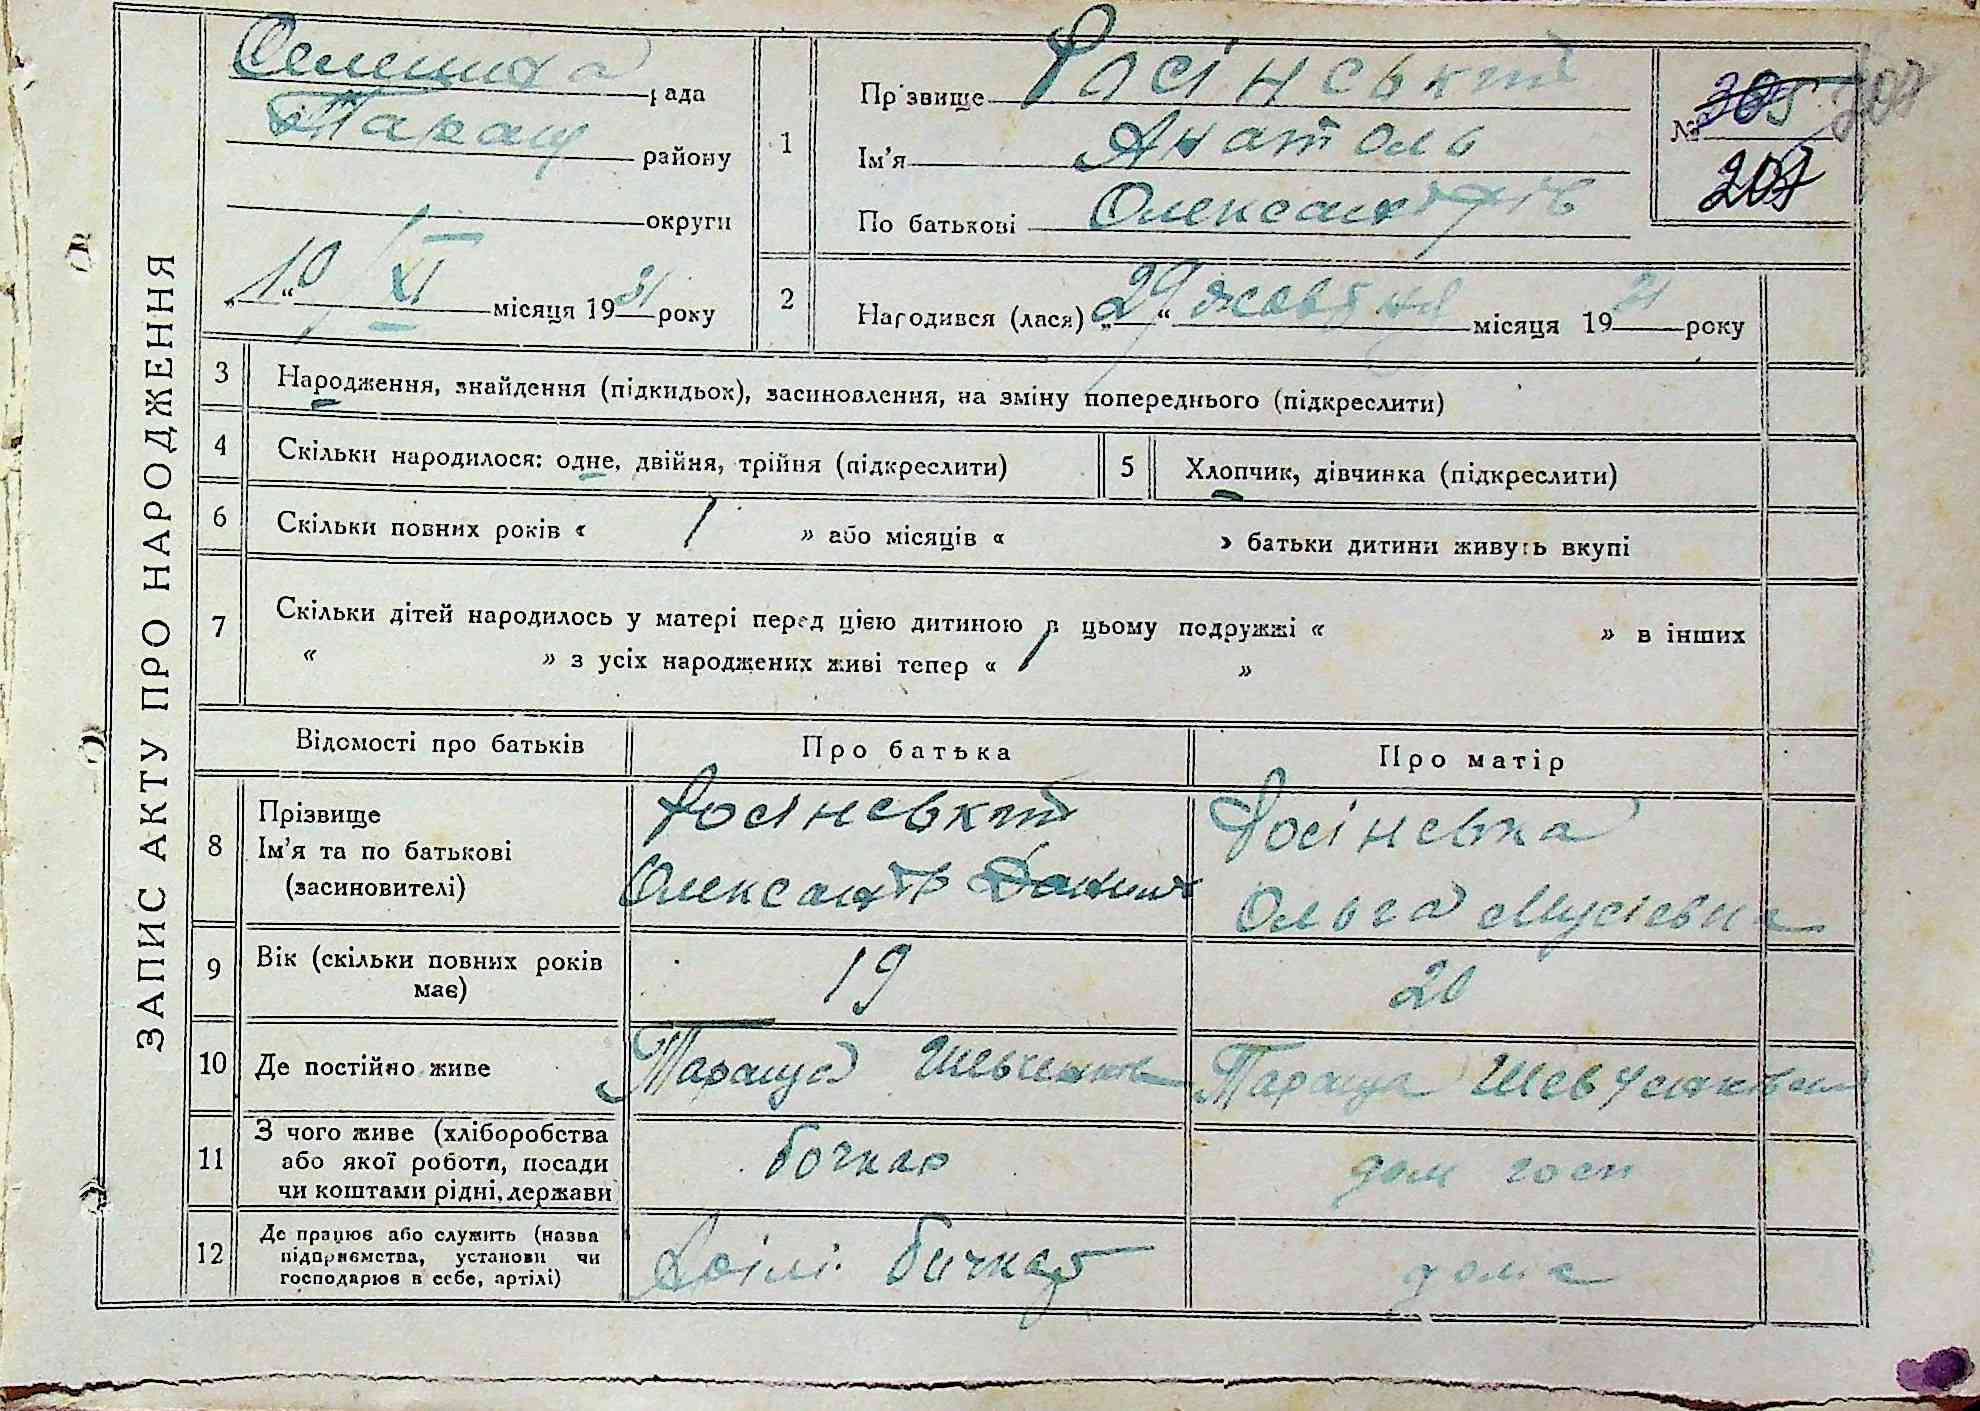 ЗАПИС АКТУ ПРО НАРОДЖЕННЯ
Селищна рада
Таращ району
округи
„10“ XI місяця 1931 року
1
Прізвище Росінський
Ім’я Анатоль
По батькові Олександрів
№ 305 207
207
2
Народився (лася) „29“ жовтня місяця 1931 року
3 Народження, знайдення (підкидьок), засиновлення, на зміну попереднього (підкреслити)
4 Скільки народилося: одне, двійня, трійня (підкреслити)
5 Хлопчик, дівчинка (підкреслити)
6 Скільки повних років « 1 » або місяців « » батьки дитини живуть вкупі
7 Скільки дітей народилось у матері перед цією дитиною в цьому подружжі « » в інших
« » з усіх народжених живі тепер « 1 »
Відомості про батьків Про батька Про матір
8 Прізвище
Ім’я та по батькові
(засиновителі)
Росінський
Олександр
Росінська
Ольга Мусієвна
9 Вік (скільки повних років
має)
19
20
10 Де постійно живе
Тараща
Тараща
11 З чого живе (хліборобства
або якої роботи, посади
чи коштами рідні, держави
бочкар
дом госп
12 Де працює або служить (назва
підприємства, установи чи
господарює в себе, артілі)
дома